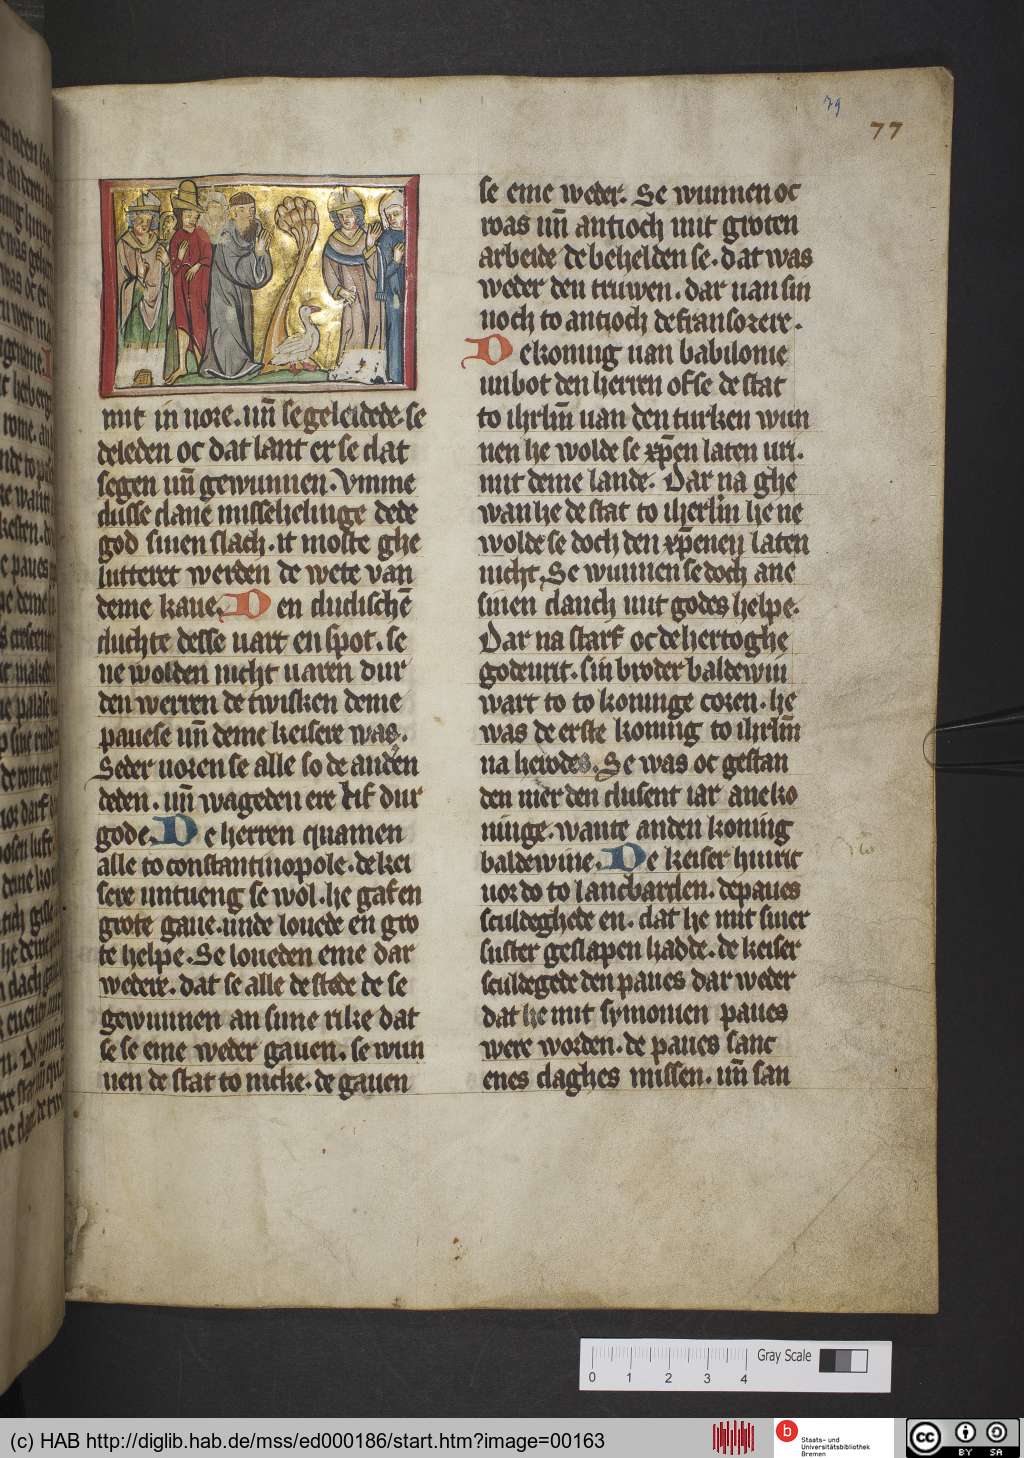 79
77
mit in vore. vn̄ se geleidede. se
deleden oc dat lant er se dat
segen vn̄ gewunnen. Vmme
dusse dane missehelinge dede
god sinen slach. it moste ghe
lutteret werden de wete van
deme kaue. Den dudischē
duchte desse vart en spot. se
ne wolden nicht varen dur
den werren de twisken deme
pauese vn̄ deme keisere was.
Seder voren se alle so de anden
deden. vn̄ wageden ere lif dur
gode. De herren quamen
alle to constantinopole. de kei
sere untueng se wol. he gaf en
grote gaue. unde louede en gro
te helpe. Se loueden eme dar
wedere. dat se alle de stede de se
gewunnen an sime rike dat
se se eme weder gauen. se wun
nen de stat to nicke. de gauen
se eme weder. Se wunnen oc
roas vn̄ antioch mit groten
arbeide de behelden se. dat was
weder den truwen. dar uan sin
noch to antioch de fransoiere.
De koning uan babilonie
vnbot den herren of se de stat
to ihrlm̄ uan den turken wun
nen he wolde se xp̄en laten vri.
mit deme lande. Dar na ghe
wan he de stat to iherlm̄ he ne
wolde se doch den xp̄enen laten
nicht. Se wunnen se doch ane
sinen danch mit godes helpe.
Dar na starf oc de hertoghe
godevrit. sin broder baldewin
wart to to koninge coren. he
was de erste koning to ihrlm̄
na herodes. Se was oc gestan
den mer den dusent iar ane ko
ninge. wante an den koning
baldewine. De keiser hinric
vor do to lancbarden. de paues
sculdeghede en. dat he mit siner
suster geslapen hadde. de keiser
sculdegede den paues dar weder
dat he mit symonien paues
were worden. de paues sanc
enes daghes missen. vn̄ san
0 1 2 3 4
Gray Scale
(c) HAB http://diglib.hab.de/mss/ed000186/start.htm?image=00163
b
Staats- und
Universitätsbibliothek
Bremen
cc
BY SA